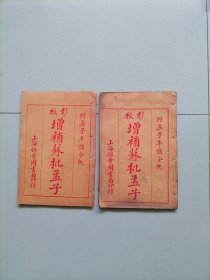 附孟子年譜全帙
增補蘇批孟子
上海錦章圖書局印行
附孟子年譜全帙
增補蘇批孟子
上海錦章圖書局印行